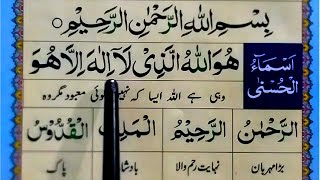 بِسْمِ اللّٰهِ الرَّحْمٰنِ الرَّحِيْمِ ○
اَسْمَاءُ الْحُسْنٰى
هُوَ اللّٰهُ الَّذِىْ لَآ اِلٰهَ اِلَّا هُوَ
وہی ہے اللہ ایسا کہ نہیں کوئی معبود مگر وہ
اَلرَّحْمٰنُ الرَّحِيْمُ الْمَلِكُ الْقُدُّوْسُ
بڑا مہربان نہایت رحم والا بادشاہ پاک